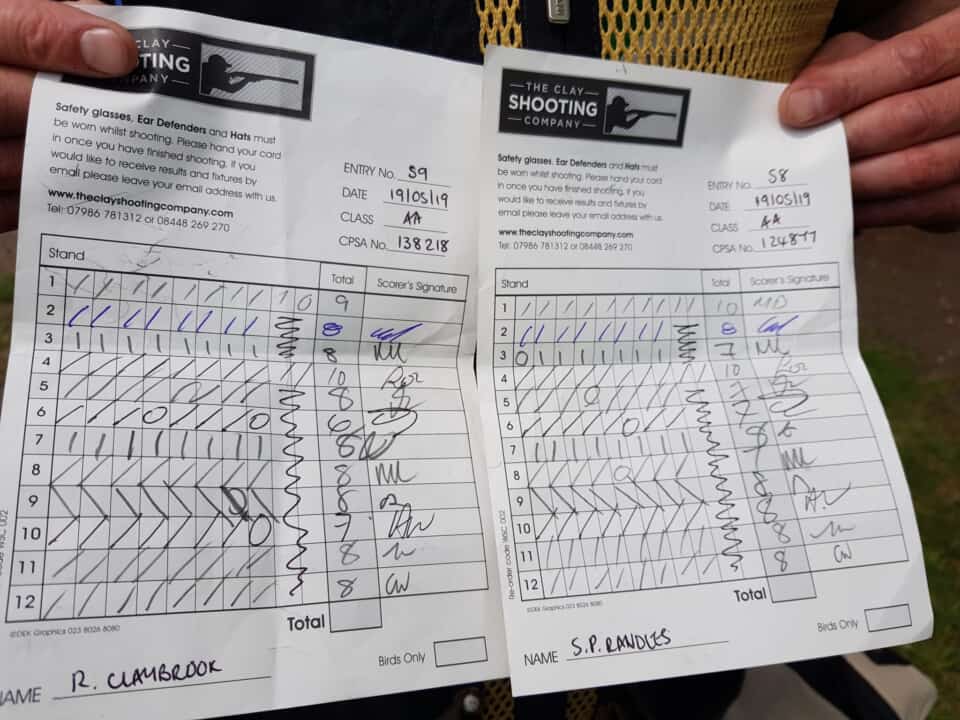 CLAY
SHOOTING
COMPANY
Safety glasses, Ear Defenders and Hats must
be worn whilst shooting. Please hand your card
in once you have finished shooting. If you
would like to receive results and fixtures by
email please leave your email address with us.
www.theclayshootingcompany.com
Tel: 07986 781312 or 08448 269 270
ENTRY No. 59
DATE 19/05/19
CLASS AA
CPSA No. 138218
Stand Total Scorer's Signature
1 / / / / / / / / / 0 9
2 / / / / / / / / 8
3 | | | | | | | | 8
4 / / / / / / / / / / 10
5 8
6 6
7 | | | | | | | | 8
8 / / / / / / / / 8
9 8
10 7
11 / / / / / / / / 8
12 / / / / / / / / 8 CW
Total
©DEK Graphics 023 8026 8080
Birds Only
NAME R. CLAYBROOK
THE CLAY
SHOOTING
COMPANY
Safety glasses, Ear Defenders and Hats must
be worn whilst shooting. Please hand your card
in once you have finished shooting. If you
would like to receive results and fixtures by
email please leave your email address with us.
www.theclayshootingcompany.com
Tel: 07986 781312 or 08448 269 270
ENTRY No. 58
DATE 19/05/19
CLASS AA
CPSA No. 124877
Stand Total Scorer's Signature
1 / / / / / / / / / / 10
2 / / / / / / / / 8
3 0 | | | | | | | 7
4 / / / / / / / / / / 10
5 7
6 7
7 | | | | | | | | 8
8 7
9 8
10 8
11 / / / / / / / / 8
12 / / / / / / / / 8 CW
Total
Re-order code WSC 002
©DEK Graphics 023 8026 8080
Birds Only
NAME S.P. RANDLES